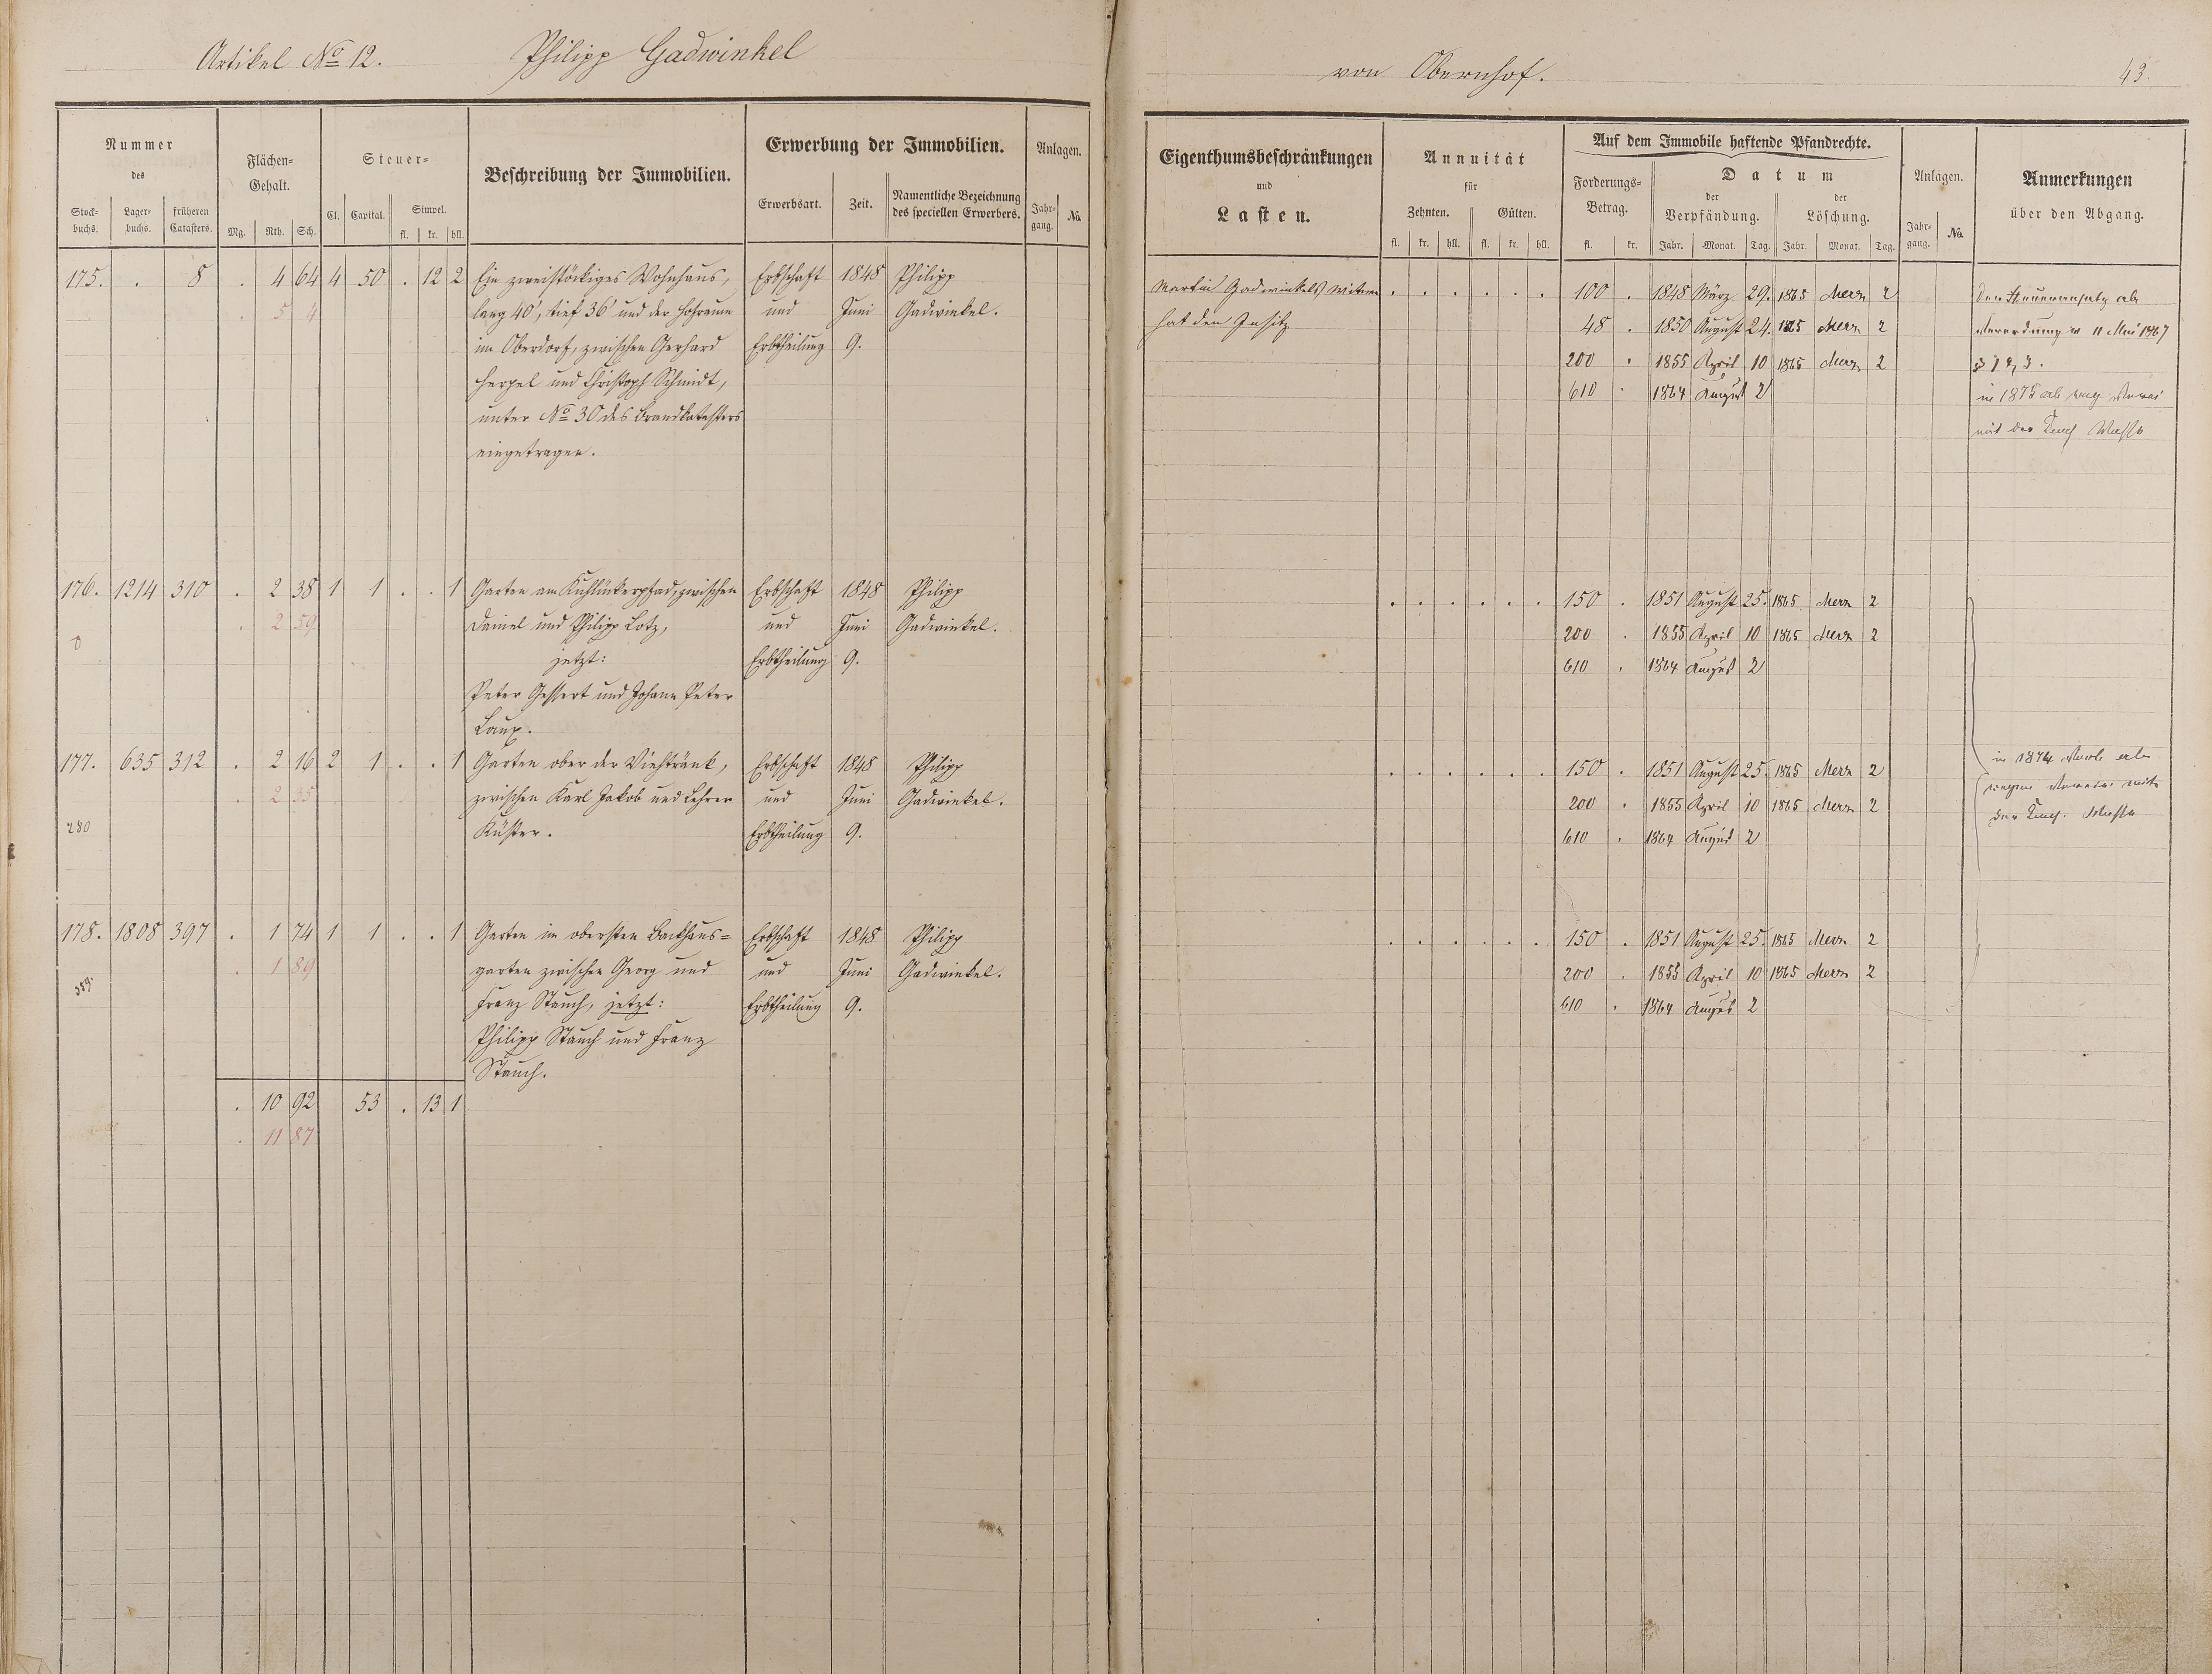 Artikel No 12. Philipp Gadwinkel
von Obernhof. 43.
Nummer
des
Stock-buchs. Lager-buchs. früheren Catasters.
Flächen-
Gehalt.
Mg. Rth. Sch.
Steuer-
Cl. Capital. Simpel.
fl. kr. hll.
Beschreibung der Immobilien.
Erwerbung der Immobilien.
Erwerbsart. Zeit. Namentliche Bezeichnung
des speciellen Erwerbers.
Anlagen.
Jahr-gang. No.
Eigenthumsbeschränkungen
und
Lasten.
Annuität
für
Zehnten. Gülten.
fl. kr. hll. fl. kr. hll.
Auf dem Immobile haftende Pfandrechte.
Forderungs-
Betrag.
fl. kr.
Datum
der Verpfändung. der Löschung.
Jahr. Monat. Tag. Jahr. Monat. Tag.
Anlagen.
Jahr-gang. No.
Anmerkungen
über den Abgang.
175. . 8 . 4 64 4 50 . 12 2 Ein zweistöckiges Wohnhaus, Erbschaft 1848 Philipp
. 5 4 lang 40', tief 36' und der Hofraum und Juni Gadwinkel.
im Oberdorf, zwischen Gerhard Erbtheilung 9.
Hergel und Christoph Schmidt,
unter No 30 des Brandkatasters
eingetragen.
Martin Gadwinkels Witwe . . . . . . 100 . 1848 März 29. 1865 Merz 2
hat den Insitz 48 . 1850 August 24. 1865 Merz 2
200 . 1855 April 10 1865 Merz 2
610 . 1864 August 2
Verordnung v 11 Mai 1867
in 1875 ab
mit der
176. 1214 310 . 2 38 1 1 . . 1 Garten am Kuhlünkerpfad, zwischen Erbschaft 1848 Philipp
. 2 59 Daniel und Philipp Lotz, und Juni Gadwinkel.
0 jetzt: Erbtheilung 9.
Peter Gessert und Johann Peter
Laux.
. . . . . . 150 . 1851 August 25. 1865 Merz 2
200 . 1855 April 10 1865 Merz 2
610 . 1864 August 2
177. 635 312 . 2 16 2 1 . . 1 Garten ober der Viehtränk, Erbschaft 1848 Philipp
. 2 35 zwischen Karl Jakob und Lehrer und Juni Gadwinkel.
280 Küster. Erbtheilung 9.
. . . . . . 150 . 1851 August 25. 1865 Merz 2
200 . 1855 April 10 1865 Merz 2
610 . 1864 August 2
in 1874
wegen
der
178. 1808 397 . 1 74 1 1 . . 1 Garten im obersten Backhaus= Erbschaft 1848 Philipp
. 1 89 garten zwischen Georg und und Juni Gadwinkel.
Franz Stauch, jetzt: Erbtheilung 9.
Philipp Stauch und Franz
Stauch.
. . . . . . 150 . 1851 August 25. 1865 Merz 2
200 . 1855 April 10 1865 Merz 2
610 . 1864 August 2
. 10 92 53 . 13 1
. 11 87